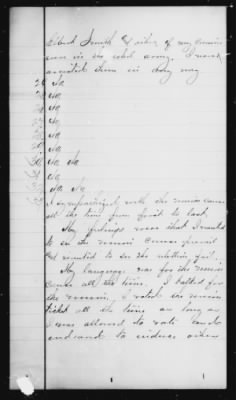 Elbert Joseph & other of my cousins
was in the rebel army. I never
assisted them in any way
24 No
No
No
No
No
No
No No
No
No No
I sympathized with the union cause
all the time from first to last,
My feelings was that I wanted
to see the union cause prevail
& I wanted to see the rebellion fail.
My language was for the union
cause all the time, I talked for
the union, I voted the union
ticket all the time as long as
I was allowed to vote and
endeavored to induce others
1
1